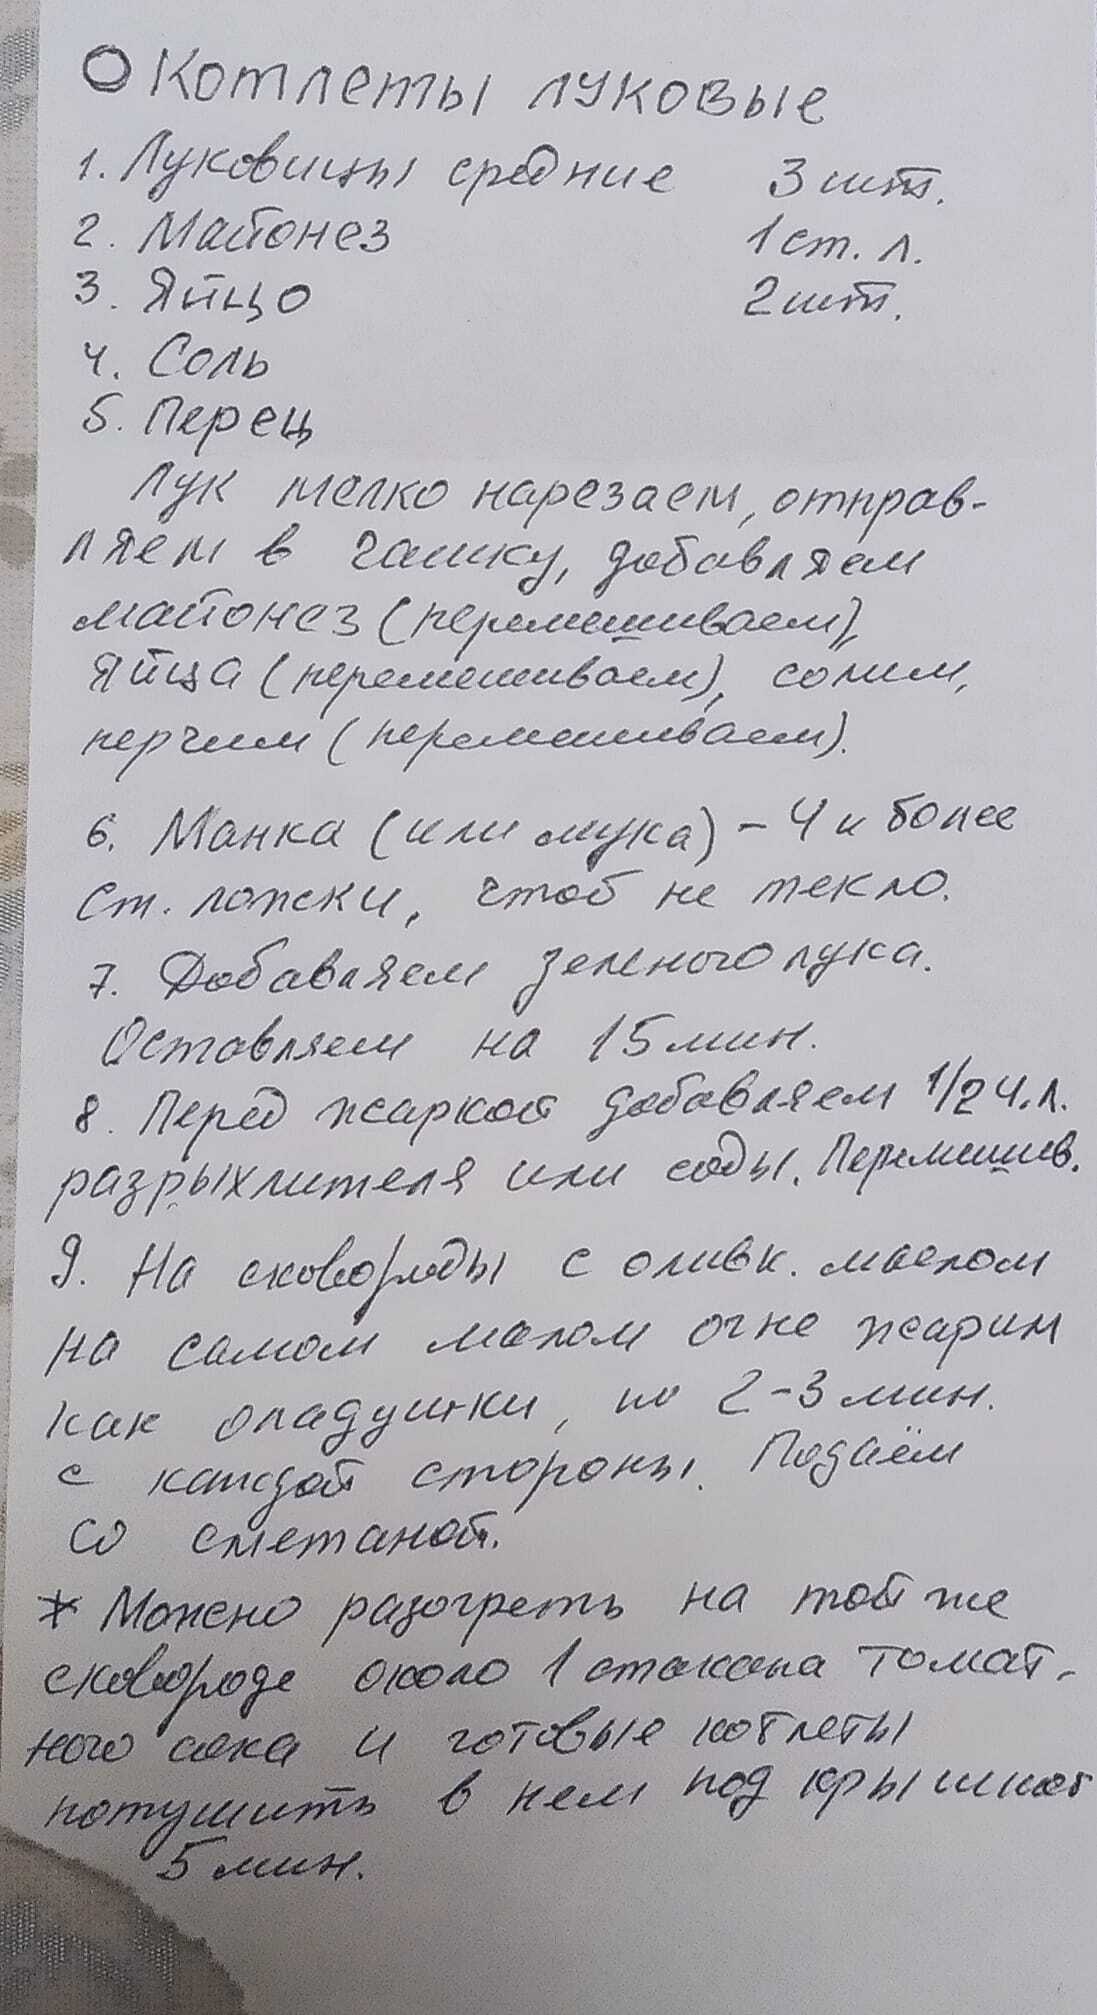 О Котлеты луковые
1. Луковицы средние 3 шт.
2. Майонез 1 ст. л.
3. Яйцо 2 шт.
4. Соль
5. Перец
Лук мелко нарезаем, отправ-
ляем в чашку, добавляем
майонез (перемешиваем),
яйца (перемешиваем), солим,
перчим (перемешиваем).
6. Манка (или мука) - 4 и более
ст. ложки, чтоб не текло.
7. Добавляем зеленого лука.
Оставляем на 15 мин.
8. Перед жаркой добавляем 1/2 ч. л.
разрыхлителя или соды. Перемешив.
9. На сковороды с оливк. маслом
на самом малом огне жарим
как оладушки, по 2-3 мин.
с каждой стороны. Подаём
со сметаной.
* Можно разогреть на той же
сковороде около 1 стакана томат-
ного сока и готовые котлеты
потушить в нем под крышкой
5 мин.